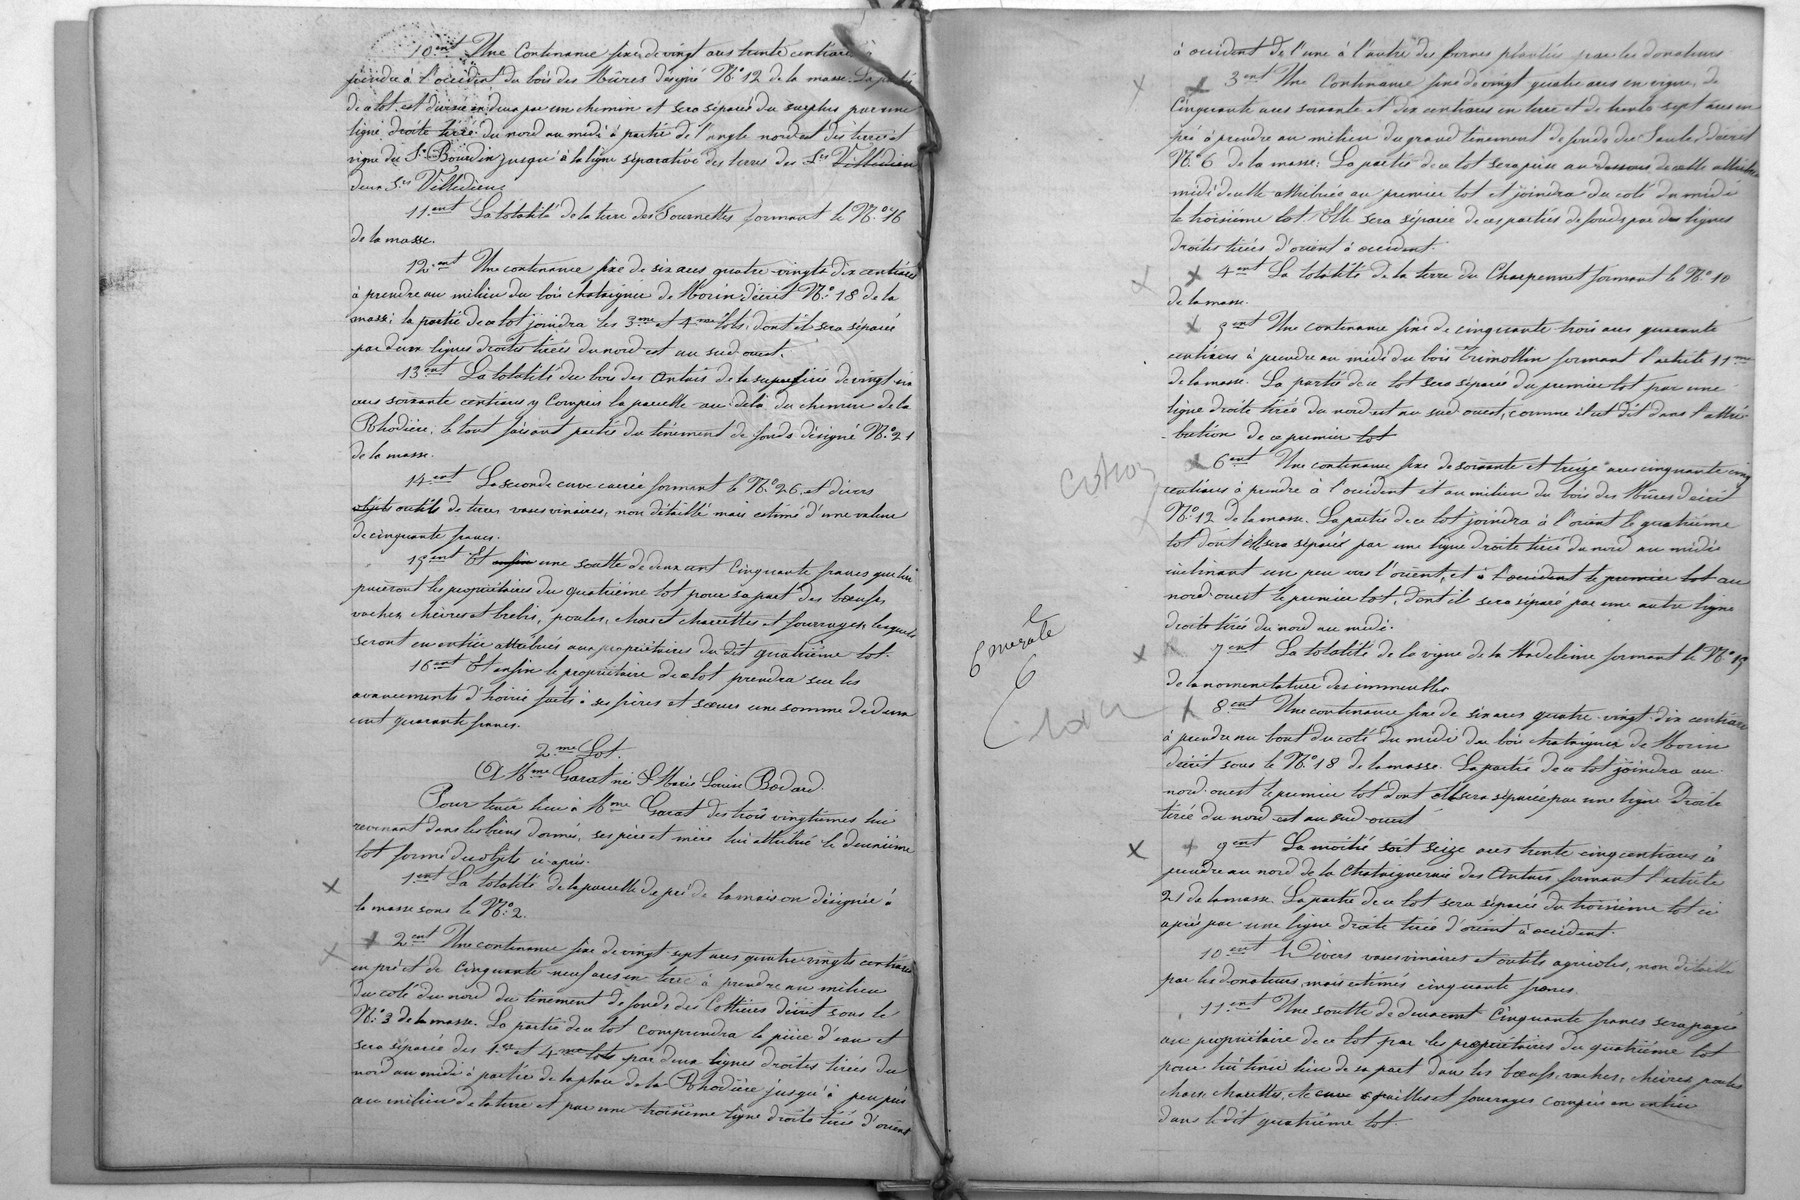 10ent Une Contenance fixe de vingt ares trente centiares à
prendre à l'occident du bois des Mûres désigné N.º 12 de la masse. La partie
de ce lot est divisée en deux par un chemin et sera séparée du surplus par une
ligne droite tirée du nord au midi à partir de l'angle nord est des terre et
vigne du Sr Bourdin jusqu'à la ligne séparative des terres des Srs Villedieu
deux Srs Villedieu
11ent La totalité de la terre des Tournettes formant le N.º 16
de la masse.
12ent Une contenance fixe de six ares quatre-vingts dix centiares
à prendre au milieu du bois chataignier de Morin décrit N.º 18 de la
masse; la partie de ce lot joindra les 3me et 4me lots, dont il sera séparé
par deux lignes droites tirées du nord est au sud-ouest.
13ent La totalité du bois des Antois de la superficie de vingt-six
ares soixante centiares y Compris la parcelle au-delà du chemin de la
Rhodière, le tout faisant partie du tènement de fonds désigné N.º 21
de la masse.
14ent La seconde cuve carrée formant le N.º 26, et divers
objets outils de terre, vases vinaires, non détaillé mais estimé d'une valeur
de cinquante francs.
15ent Et enfin une soulte de deux cent Cinquante francs que lui
paieront les propriétaires du quatrième lot pour sa part des bœufs,
vaches, chèvres et brebis, poules, chars et charettes et fourrages, lesquels
seront en entier attribués aux propriétaires du dit quatrième lot.
16ent Et enfin le propriétaire de ce lot prendra sur les
avancements d'hoirie faits à ses frères et sœurs une somme de deux
cent quarante francs.
2me Lot.
A Mme Garat née Marie Louise Bodard.
Pour tenir lieu à Mme Garat des trois vingtièmes lui
revenant dans les biens donnés, ses père et mère lui attribué le deuxième
lot formé des objets ci-après.
1ent La totalité de la parcelle de pré de la maison désignée à
la masse sous le N.º 2.
2ent Une contenance fixe de vingt-sept ares quatre-vingts centiares
en pré et de Cinquante-neuf ares en terre à prendre au milieu
du coté du nord du tènement de fonds des Cottières décrit sous le
N.º 3 de la masse. La partie de ce lot comprendra la pièce d'eau et
sera séparée des 1er et 4me lots par deux lignes droites tirées du
nord au midi à partir de la place de la Rhodière jusqu'à peu près
au milieu de la terre et par une troisième ligne droite tirée d'orient
à occident de l'une à l'autre des bornes plantées par les donateurs
3ent Une Contenance fixe de vingt quatre ares en vigne, de
Cinquante ares soixante et dix centiares en terre et de trente-sept ares en
pré à prendre au milieu du grand tènement de fonds du Saule, décrit
N.º 6 de la masse. La partie de ce lot sera prise au dessous de celle attribuée
midi de celle attribuée au premier lot et joindra du coté du midi
le troisième lot. Elle sera séparée de ces parties de fonds par des lignes
droites tirées d'orient à occident.
4ent La totalité de la terre du Charpennet formant le N.º 10
de la masse.
5ent Une contenance fixe de cinquante trois ares quarante
centiares à prendre au midi du bois Trimollin formant l'article 11me
de la masse. La partie de ce lot sera séparée du premier lot par une
ligne droite tirée du nord-est au sud-ouest, comme il est dit dans l'attri-
-bution de ce premier lot
6ent Une contenance fixe de soixante et treize ares cinquante cinq
centiares à prendre à l'occident et au milieu du bois des Mûres décrit
N.º 12 de la masse. La partie de ce lot joindra à l'orient le quatrième
lot dont elle sera séparée par une ligne droite tirée du nord au midi
inclinant un peu vers l'orient, et à l'occident le premier lot au
nord-ouest le premier lot, dont il sera séparé par une autre ligne
droite tirée du nord au midi.
Emerate
7ent La totalité de la vigne de la Madeleine formant le N.º 15
de la nomenclature des immeubles
8ent Une contenance fixe de six ares quatre-vingt-dix centiares
à prendre au bout du coté du midi du bois chataignier de Morin
décrit sous le N.º 18 de la masse. La partie de ce lot joindra au
nord-ouest le premier lot dont elle sera séparée par une ligne droite
tirée du nord-est au sud-ouest
9ent La moitié soit seize ares trente cinq centiares à
prendre au nord de la Chataigneraie des Antois formant l'article
21 de la masse. La partie de ce lot sera séparée du troisième lot ci
après par une ligne droite tirée d'orient à occident.
10ent Divers vases vinaires et outils agricoles, non détaillés
par les donateurs, mais estimés cinquante francs.
11ent Une soulte de deux cent Cinquante francs sera payée
au propriétaire de ce lot par les propriétaires du quatrième lot
pour lui tenir lieu de sa part dans les bœufs, vaches, chèvres, poules
chars charettes, et fourrages compris en entier
dans le dit quatrième lot.